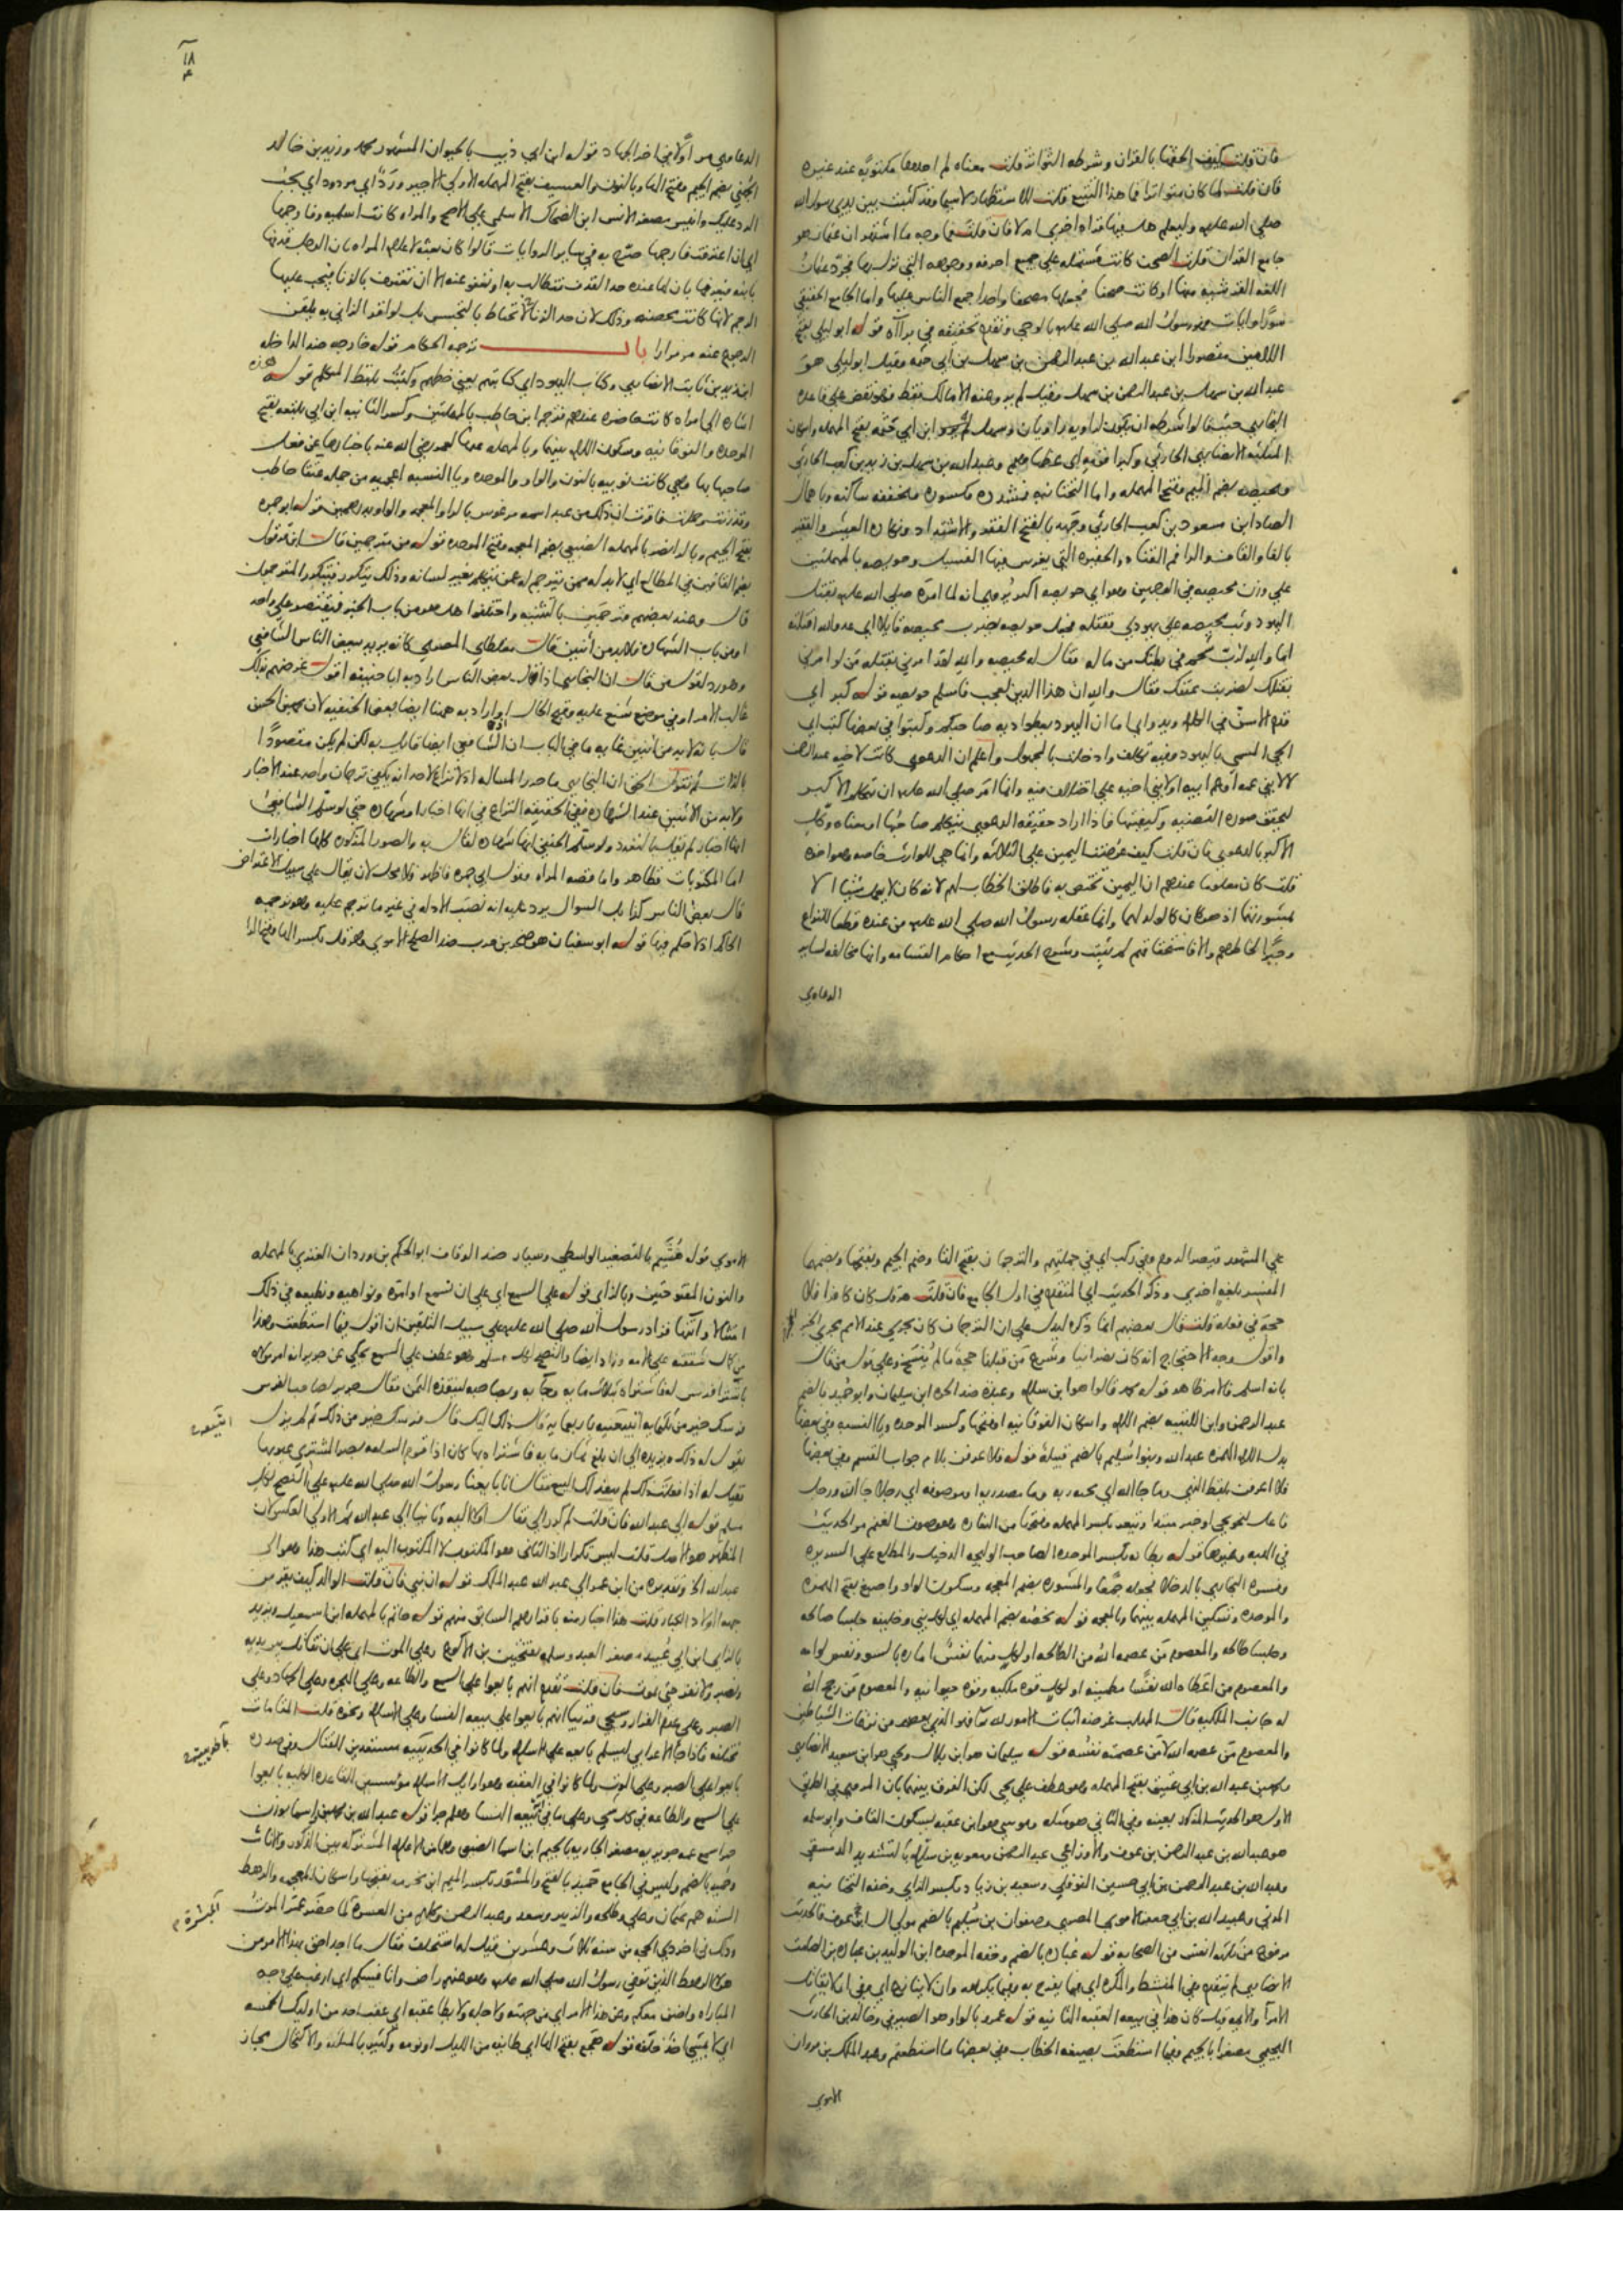 فان قلت كيف الحقها بالقران وشرطه التواتر قلت معناه لم اجدها مكتوبة عند غيره
فان قلت لما كان متواترا فما هذا التتبع قلت للاستظهار لا سيما وقد كتبت بين يدي رسول الله
صلى الله عليه وليعلم هل فيها قراه اخرى ام لا فان قلت فما وجه ما اشتهر ان عثمان هو
جامع القران قلت الصحف كانت مشتملة على جميع احرفه ووجوهه التي نزل بها فجرد عثمان
اللغة القرشية منها او كانت صحفا فجعلها مصحفا واحدا جمع الناس عليها واما الجامع الحقيقي
سورا وايات فهو رسول الله صلى الله عليه بالوحي وتقدم تحقيقه في براآة قوله ابو ليلى بفتح
اللامين مقصورا ابن عبد الله بن عبد الرحمن بن سهل بن ابي حثمه وقيل ابو ليلى هو
عبد الله بن سهل بن عبد الرحمن بن سهل وقيل لم يرو عنه الا مالك فقط فهو نقض على قاعدة
البخاري حيث قالوا شرطه ان يكون لراويه راويان وسهل هو ابن ابي حثمه بفتح المهمله واسكان
المثلثه الانصاري الحارثي وكبرا قومه اي عظماوهم وعبد الله بن سهل بن زيد بن كعب الحارثي
ومحيصه بضم الميم وفتح المهمله واما التحتانيه فمشدده مكسوره ومخففه ساكنه وباهمال
الصاد ابن مسعود بن كعب الحارثي وجهد بالفتح الفقر والاشتداد ونكاد العيش والفقير
بالفا والقاف والرا فم القناه والحفيره التي يغرس فيها الفسيل وحويصه بالمهملتين
على وزن محيصه في الوجهين وهو اخو حويصه اكبر روي انه لما امره صلى الله عليه بقتل
اليهود وثب محيصه على يهودي فقتله فجعل حويصه يضرب محيصه قايلا اي عدو الله اقتلته
اما والله لرب شحم في بطنك من ماله فقال له محيصه والله لقد امرني بقتله من لو امرني
بقتلك لضربت عنقك فقال والله ان هذا الدين لعجب فاسلم حويصه قوله كبر اي
قدم الاسن في الكلام ويدوا اي اما ان اليهود يعطوا ديه صاحبكم وكتبوا في بعضها كتب اي
الحي المسمى باليهود وفيه تكلف وادخلت بالمجهول واعلم ان الدعوى كانت لاخيه عبد الرحمن
لا لابني عمه
لتحقق صوره القضيه وكيفيتها فاذا اراد حقيقه الدعوى يتكلم صاحبها او معناه وكل
الاكبر بالدعوى فان قلت كيف عرضت اليمين على الثلاثه وانما هي للوارث خاصه وهو اخوه
قلت كان معلوما عندهم ان اليمين تختص به فاطلق الخطاب لهم لانه كان لا يعمل شيئا الا
بمشورتهما اذ هو كان كالولد لهما وانما عقله رسول الله صلى الله عليه من عنده قطعا للنزاع
وجبرا لخاطرهم والا فاستحقاقهم لم يثبت وشرح الحديث مع احكام القسامه وانها مخالفه لساير
الدعاوي
الدعاوي مر اولا في اخر الجهاد قوله ابن ابي ذيب بالحيوان المشهور محمد وزيد بن خالد
الجهني بضم الجيم وفتح الها وبالنون والعسيف بفتح المهمله الاولى الاجير ورد اي مردود اي يجب
الرد عليك وانيس مصغر الانس ابن الضحاك الاسلمي على الاصح والمراه كانت اسلميه وفارجمها
اي ان اعترفت فارجمها صرح به في ساير الروايات قالوا كان بعثه لاعلام المراه بان الرجل قذفها
بابنه فيعرفها بان لها عنده حد القذف فتطالب به او تعفو عنه الا ان تعترف بالزنا فيجب عليها
الرجم لانها كانت محصنه وذلك لان حد الزنا لا يحتاط بالتجسس بل لو اقر الزاني به يلقن
الرجوع عنه مر مرارا باب ترجمه الحكام قوله خارجه ضد الداخله
ابن زيد بن ثابت الانصاري وكتاب اليهود اي كتابتهم يعني خطهم وكتبت بلفظ المتكلم قوله هذه
اشاره الى امراه كانت حاضره عندهم فترجم ابن حاطب بالمهملتين وكسر الثانيه ابن ابي بلتعه بفتح
الموحده والفوقانيه وسكون اللام بينهما وبالمهمله عنها لعمر رضي الله عنه باخبارها عن فعل
صاحبها بها وهي كانت نوبيه بالنون والواو والموحده ويا النسبه اعجميه من جمله عتقا حاطب
وقد زنت وحملت فاقرت ان ذلك من عبد اسمه مرغوس بالرا والمعجمه والواو بدرهمين قوله ابو جمره
بفتح الجيم وبالرا نصر بالمهمله الضبعي بضم المعجمه وفتح الموحده قوله من مترجمين قال ابن قرقول
قال وعند بعضهم مترجمين بالتثنيه واختلفوا هل هو من باب الخبر فيقتصر على واحد
او من باب الشهاده فلا بد من اثنين قال مغلطاي المصري كانه يريد ببعض الناس الشافعي
وهو رد لقول من قال ان البخاري اذا قال بعض الناس اراد به ابا حنيفه اقول غرضهم بذلك
غالب الامر او في موضع تشنيع عليه وقبح الحال او اراد به ههنا ايضا بعض الحنفيه لان محمد بن الحسن
قال بانه لا بد من اثنين غايه ما في الباب ان الشافعي ايضا قايل به لكن لم يكن مقصودا
بالذات ثم نقول الحق ان البخاري ما حرر المساله اذ لا نزاع لاحد انه يكفي ترجمان واحد عند الاخبار
ولا بد من الاثنين عند الشهاده ففي الحقيقه النزاع في انها اخبار او شهاده حتى لو سلم الشافعي
انها اخبار لم يقل بالتعدد ولو سلم الحنفي انها شهاده لقال به والصور المذكوره كلها اخبارات
اما المكتوبات فظاهر واما قصه المراه وقول ابي جمره فاظهر فلا محل لان يقال على سبيل الاعتراض
قال بعض الناس كذا بل السوال يرد عليه انه نصب الادله في غير ما ترجم عليه وهو ترجمه
الحاكم اذ لا حكم فيها قوله ابو سفيان هو صخر بن حرب ضد الصلح الاموي وهرقل بكسر الها وفتح الرا
على المشهور قيصر الروم وفي ركب اي في جملتهم والترجمان بفتح التا وضم الجيم وبفتحها وبضمها
المفسر بلغه اخرى وذكر الحديث اي المتقدم في اول الجامع فان قلت هرقل كان كافرا فلا
حجه في فعله قلت قال بعضهم انما ذكره ليدل على ان الترجمان كان يجري عند الامم مجرى الخبر
واقول وجه الاحتجاج انه كان نصرانيا وشرع من قبلنا حجه ما لم ينسخ وعلى قول من قال
بانه اسلم فالامر ظاهر قوله محمد قالوا هو ابن سلام وعبده ضد الحره ابن سليمان وابو حميد بالضم
عبد الرحمن وابن اللتبيه بضم اللام واسكان الفوقانيه او فتحها وكسر الموحده ويا النسبه وفي بعضها
بدل اللام الهمزه عبد الله وبنو سليم بالضم قبيله قوله فلا عرفن بلام جواب القسم وفي بعضها
فلا اعرفن بلفظ النفي وما جا الله اي مجيه ربه وما مصدريه او موصوفه اي رجلا جا الله ورجل
فاعل لنحو يجي او خبر مبتدا وتيعر بكسر المهمله وفتحها من اليعار وهو صوت الغنم مر الحديث
في الهبه وغيرها قوله بطانه بكسر الموحده الصاحب الوليجه الدخيل والمطلع على السريره
وفسره البخاري بالدخلا بجعله جمعا والمشوره بضم المعجمه وسكون الواو واصبغ بفتح الهمزه
والموحده وتسكين المهمله بينهما وبالمعجمه قوله تحضه بضم المهمله اي لكل نبي وخليفه جلسا صالحه
وجلسا طالحه والمعصوم من عصمه الله من الطالحه او لكل منهما نفس اماره بالسو ونفس لوامه
والمعصوم من اعطاه الله نفسا مطمينه او لكل قوه ملكيه وقوه حيوانيه والمعصوم من رجح الله
له جانب الملكيه قال المهلب غرضه اثبات الامور لله تعالى فهو الذي يعصم من نزغات الشياطين
والمعصوم من عصمه الله لا من عصمته نفسه قوله سليمان هو ابن بلال ويحيى هو ابن سعيد الانصاري
ومحمد بن عبد الله بن ابي عتيق بفتح المهمله وهو عطف على يحيى لكن الفرق بينهما بان المروي في الطريق
الاول هو الحديث المذكور بعينه وفي الثاني هو مثله وموسى هو ابن عقبه بسكون القاف وابو سلمه
هو عبد الله بن عبد الرحمن بن عوف والاوزاعي عبد الرحمن ومعويه بن سلام بالتشديد الدمشقي
وعبد الله بن عبد الرحمن بن ابي حسين النوفلي وسعيد بن زياد بكسر الزاي وخفه التحتانيه
المدني وعبيد الله بن ابي جعفر الاموي المصري وصفوان بن سليم بالضم مولى ال ابن عوف فالحديث
مرفوع من ثلاثه انفس من الصحابه قوله عباده بالضم وخفه الموحده ابن الوليد بن عباده بن الصامت
الانصاري لم يتقدم وفي المنشط والمكره اي فيما يفرح به وفيما يكرهه وان لا ينازع اي وفي ان لا يقاتل
الامرا والايمه قيل كان هذا في بيعه العقبه الثانيه قوله عمرو بالواو هو الصيرفي وخالد بن الحارث
الهجيمي مصغرا بالجيم وفيما استطعت بصيغه الخطاب وفي بعضها ما استطعتم وعبد الملك بن مروان
الاموي
الاموي قوله هشيم بالتصغير الواسطي وسيار ضد الوقاف ابو الحكم بن وردان العنزي بالمهمله
والنون المفتوحتين وبالزاي قوله على السمع اي على ان نسمع اوامره ونواهيه ونطيعه في ذلك
امتثالا وانتها فزاد رسول الله صلى الله عليه على سبيل التلقين ان اقول فيما استطعت وهذا
من كمال شفقته على الامه وزاد ايضا والنصح لكل مسلم وهو عطف على السمع يحكى عن جرير انه امر مولاه
باشترا فرس له فاشتراه بثلاث مايه وجا به وبصاحبه لينقده الثمن فقال جرير لصاحب الفرس
فرسك خير من ثلثمايه اتبيعنيه باربعمايه قال ذلك اليك قال فرسك خير من ذلك ثم لم يزل
يقول له ذلك ويزيده الى ان بلغ ثمان مايه فاشتراه بها وكان اذا قوم السلعه بصر المشتري عيوبها
فقيل له اذا فعلت ذلك لم ينفذ لك البيع فقال انا بايعنا رسول الله صلى الله عليه على النصح لكل
مسلم قوله الى عبد الله فان قلت لم كرر الى فقال اولا اليه وثانيا الى عبد الله ثم الاولى العكس لان
المظهر هو الاصل قلت ليس تكرارا اذ الثاني هو المكتوب لا المكتوب اليه اي كتب هذا وهو الى
عبد الله الخ وتقديره من ابن عمر الى عبد الله عبد الملك قوله ان بني فان قلت الوالد كيف يقر من
جهه الاولاد الكبار قلت هذا اخبار منه باقرارهم السابق منهم قوله حاتم بالمهمله ابن اسمعيل ويزيد
بالزاي ابن ابي عبيد مصغر العبد وسلمه بفتحتين بن الاكوع وعلى الموت اي على ان نقاتل بين يديه
ونصبر ولا نفر حتى نموت فان قلت تقدم انهم بايعوا على السمع والطاعه وعلى الهجره وعلى الجهاد وعلى
الصبر وعلى عدم الفرار وسيجي قريبا انهم بايعوا على بيعه النسا وعلى الاسلام ونحوه قلت المقامات
مختلفه فاذا جا الاعرابي ليسلم بايعه على الاسلام ولما كانوا في الحديبيه مستعدين للقتال وفي صدده
بايعوا على الصبر وعلى الموت ولما كانوا في العقبه وهو اوايل الاسلام موسسين لقاعده الكليه بايعوا
على السمع والطاعه في كل شي وعلى ما في بيعه النسا وهلم جرا قوله عبد الله بن محمد بن اسما بوزن
حمرا سمع عمه جويريه مصغر الجاريه بالجيم ابن اسما الضبعي وهما من الاعلام المشتركه بين الذكور والاناث
وحميد بالضم وليس في الجامع حميد بالفتح والمسور بكسر الميم ابن مخرمه بفتحها واسكان المعجمه والرهط
السته هم عثمان وعلي وطلحه والزبير وسعد وعبد الرحمن وكلهم من العشره لما حضر عمر الموت
وذلك في اخر ذي الحجه من سنه ثلاث وعشرين فقيل له استخلف فقال ما احد احق بهذا الامر من
هولا الرهط الذين توفي رسول الله صلى الله عليه وهو عنهم راض وانافسكم اي ارغب على وجه
المباراه وانافسكم وعن هذا الامر اي من جهته ولاجله ولا يطا عقبه اي عقب احد من اوليك الخمسه
اي لا يمشي خلفه قوله هجع بفتح الها اي طايفه من الليل او نومه وكثير بالمثلثه والاكتحال مجاز